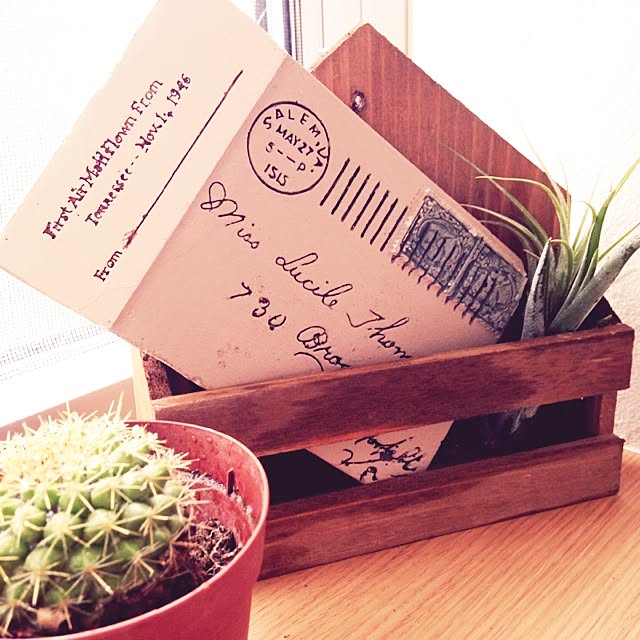 First Air Mail flown from
Tennessee -- Nov. 1, 1946
From
SALEM
MAY 27
5 -- P
1515
Miss Lucile Thom
730